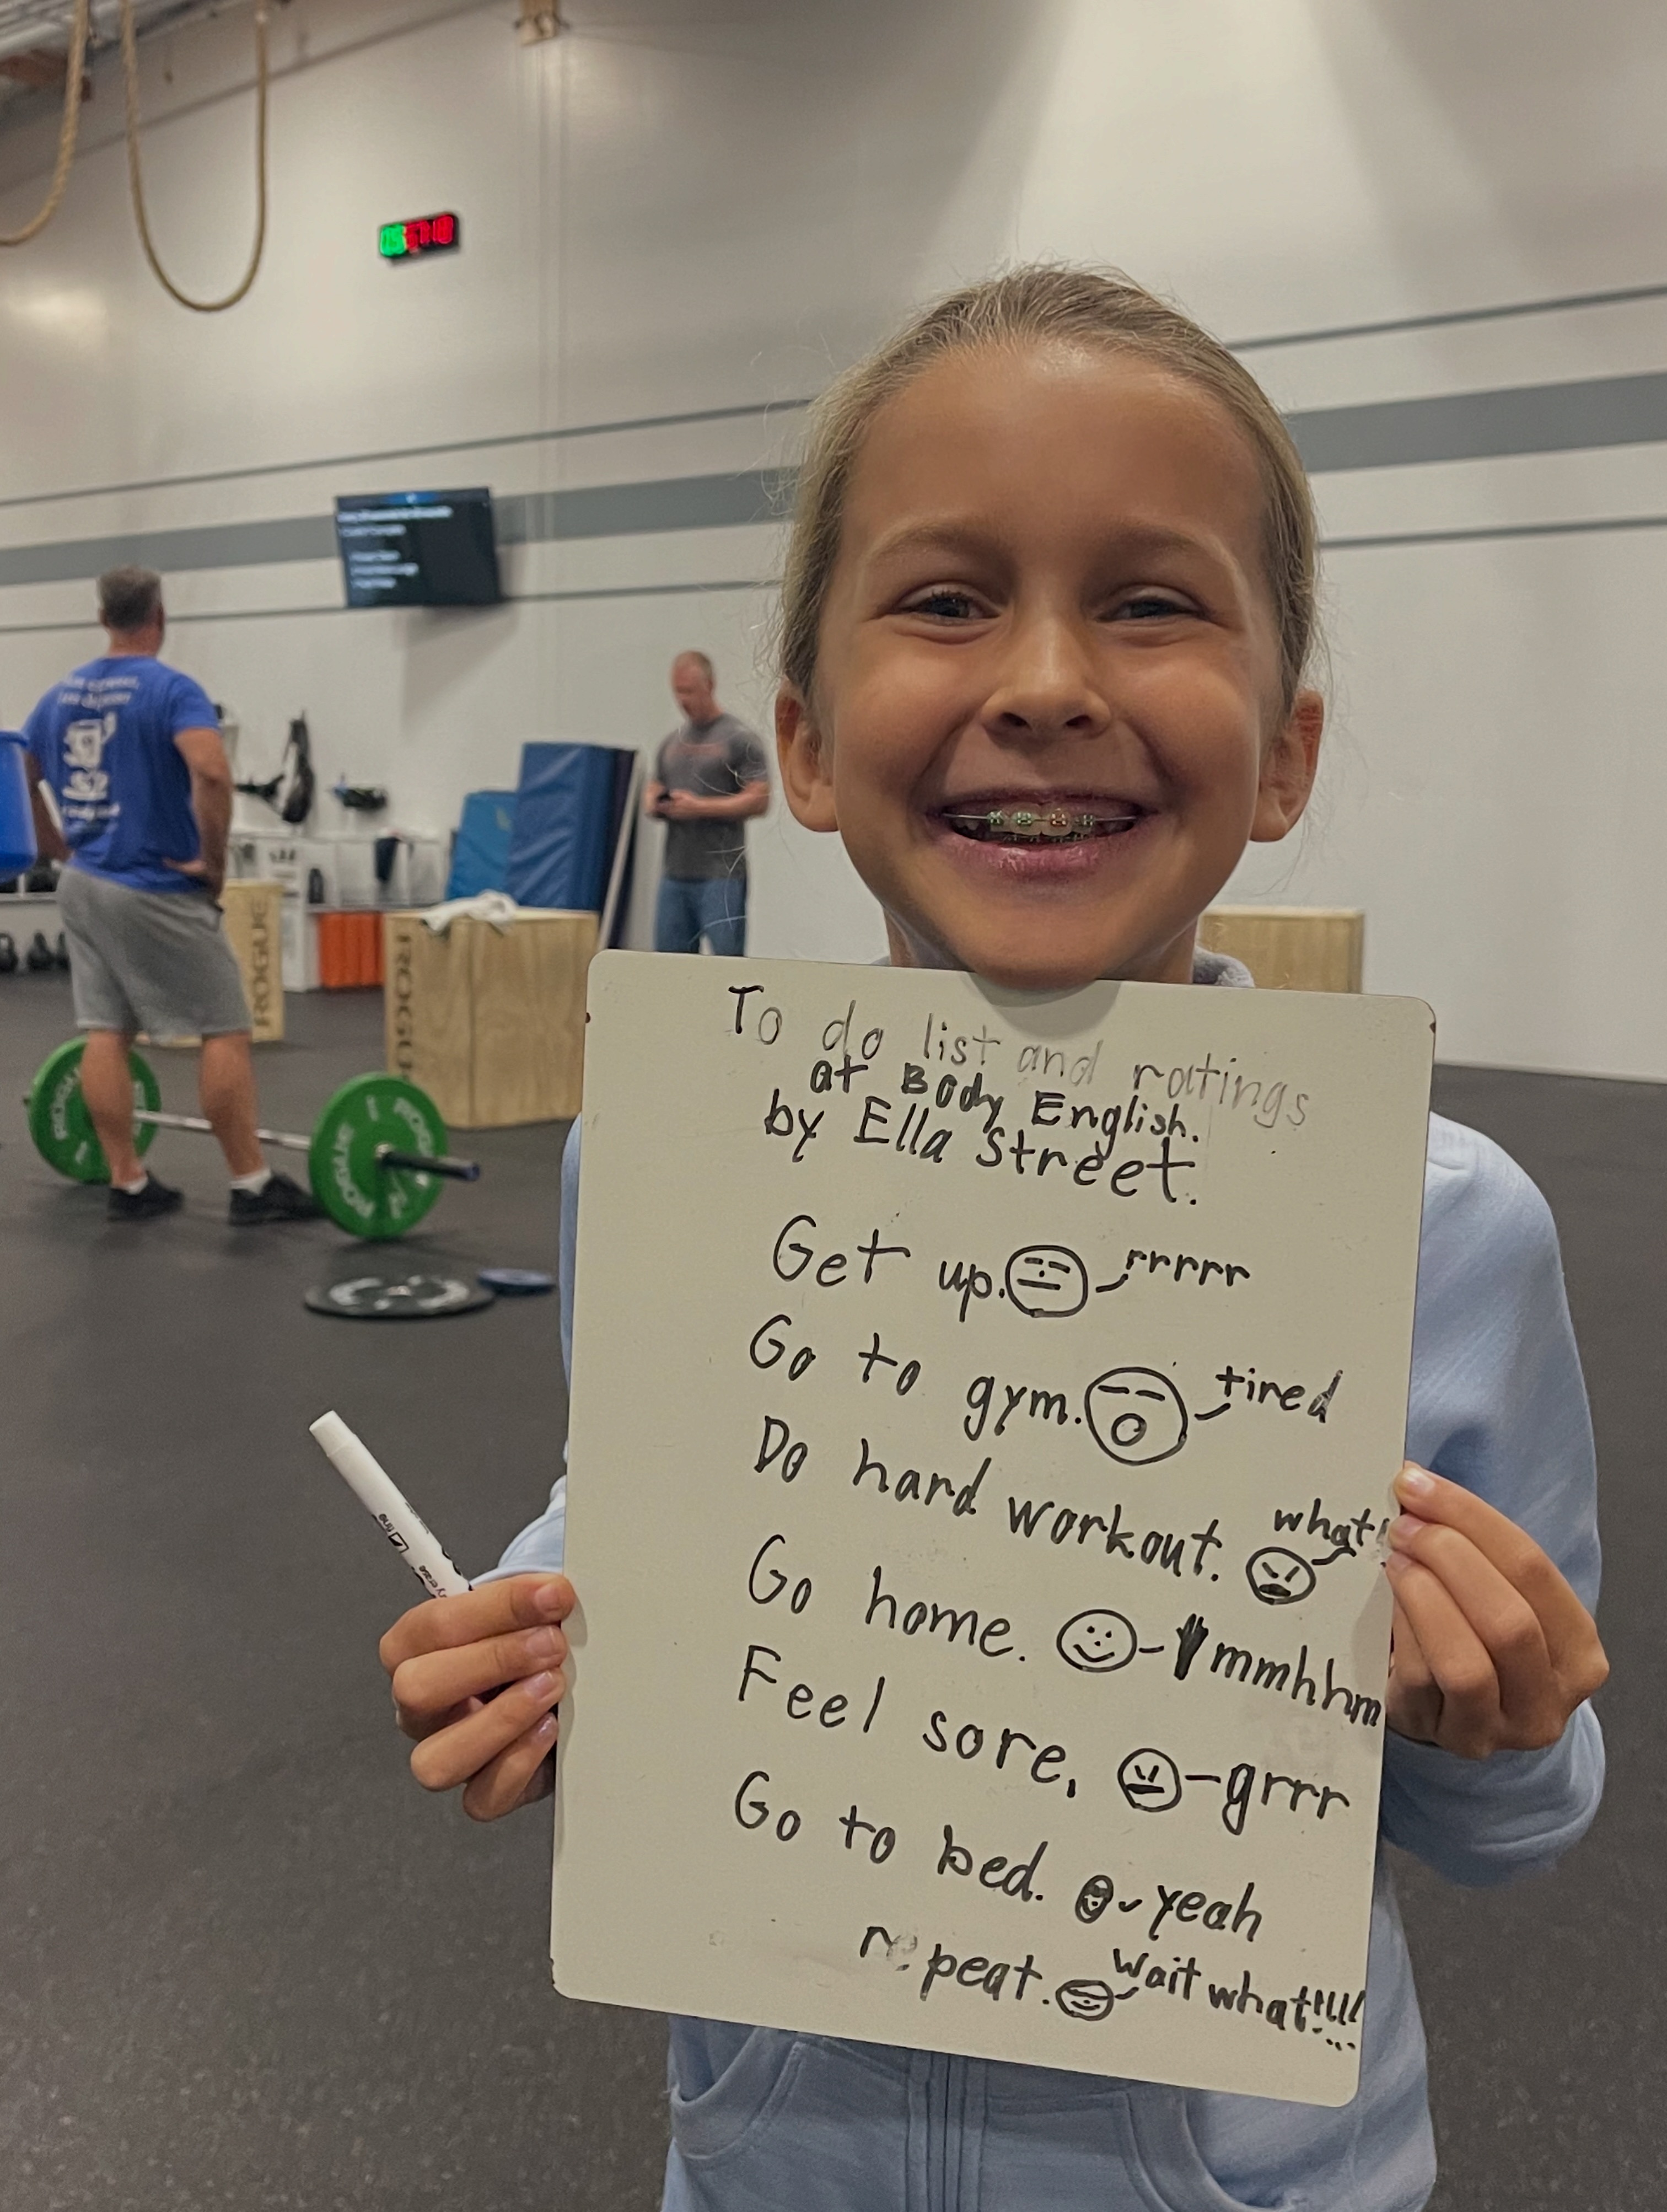 To do list and ratings
at Body English.
by Ella Street.
Get up. rrrrr
Go to gym. tired
Do hard workout. what!
Go home. mmhhm
Feel sore, grrr
Go to bed. yeah
repeat. wait what!!!!!
ROGUE
ROGUE
ROGUE
ROGUE
ROGUE
fine